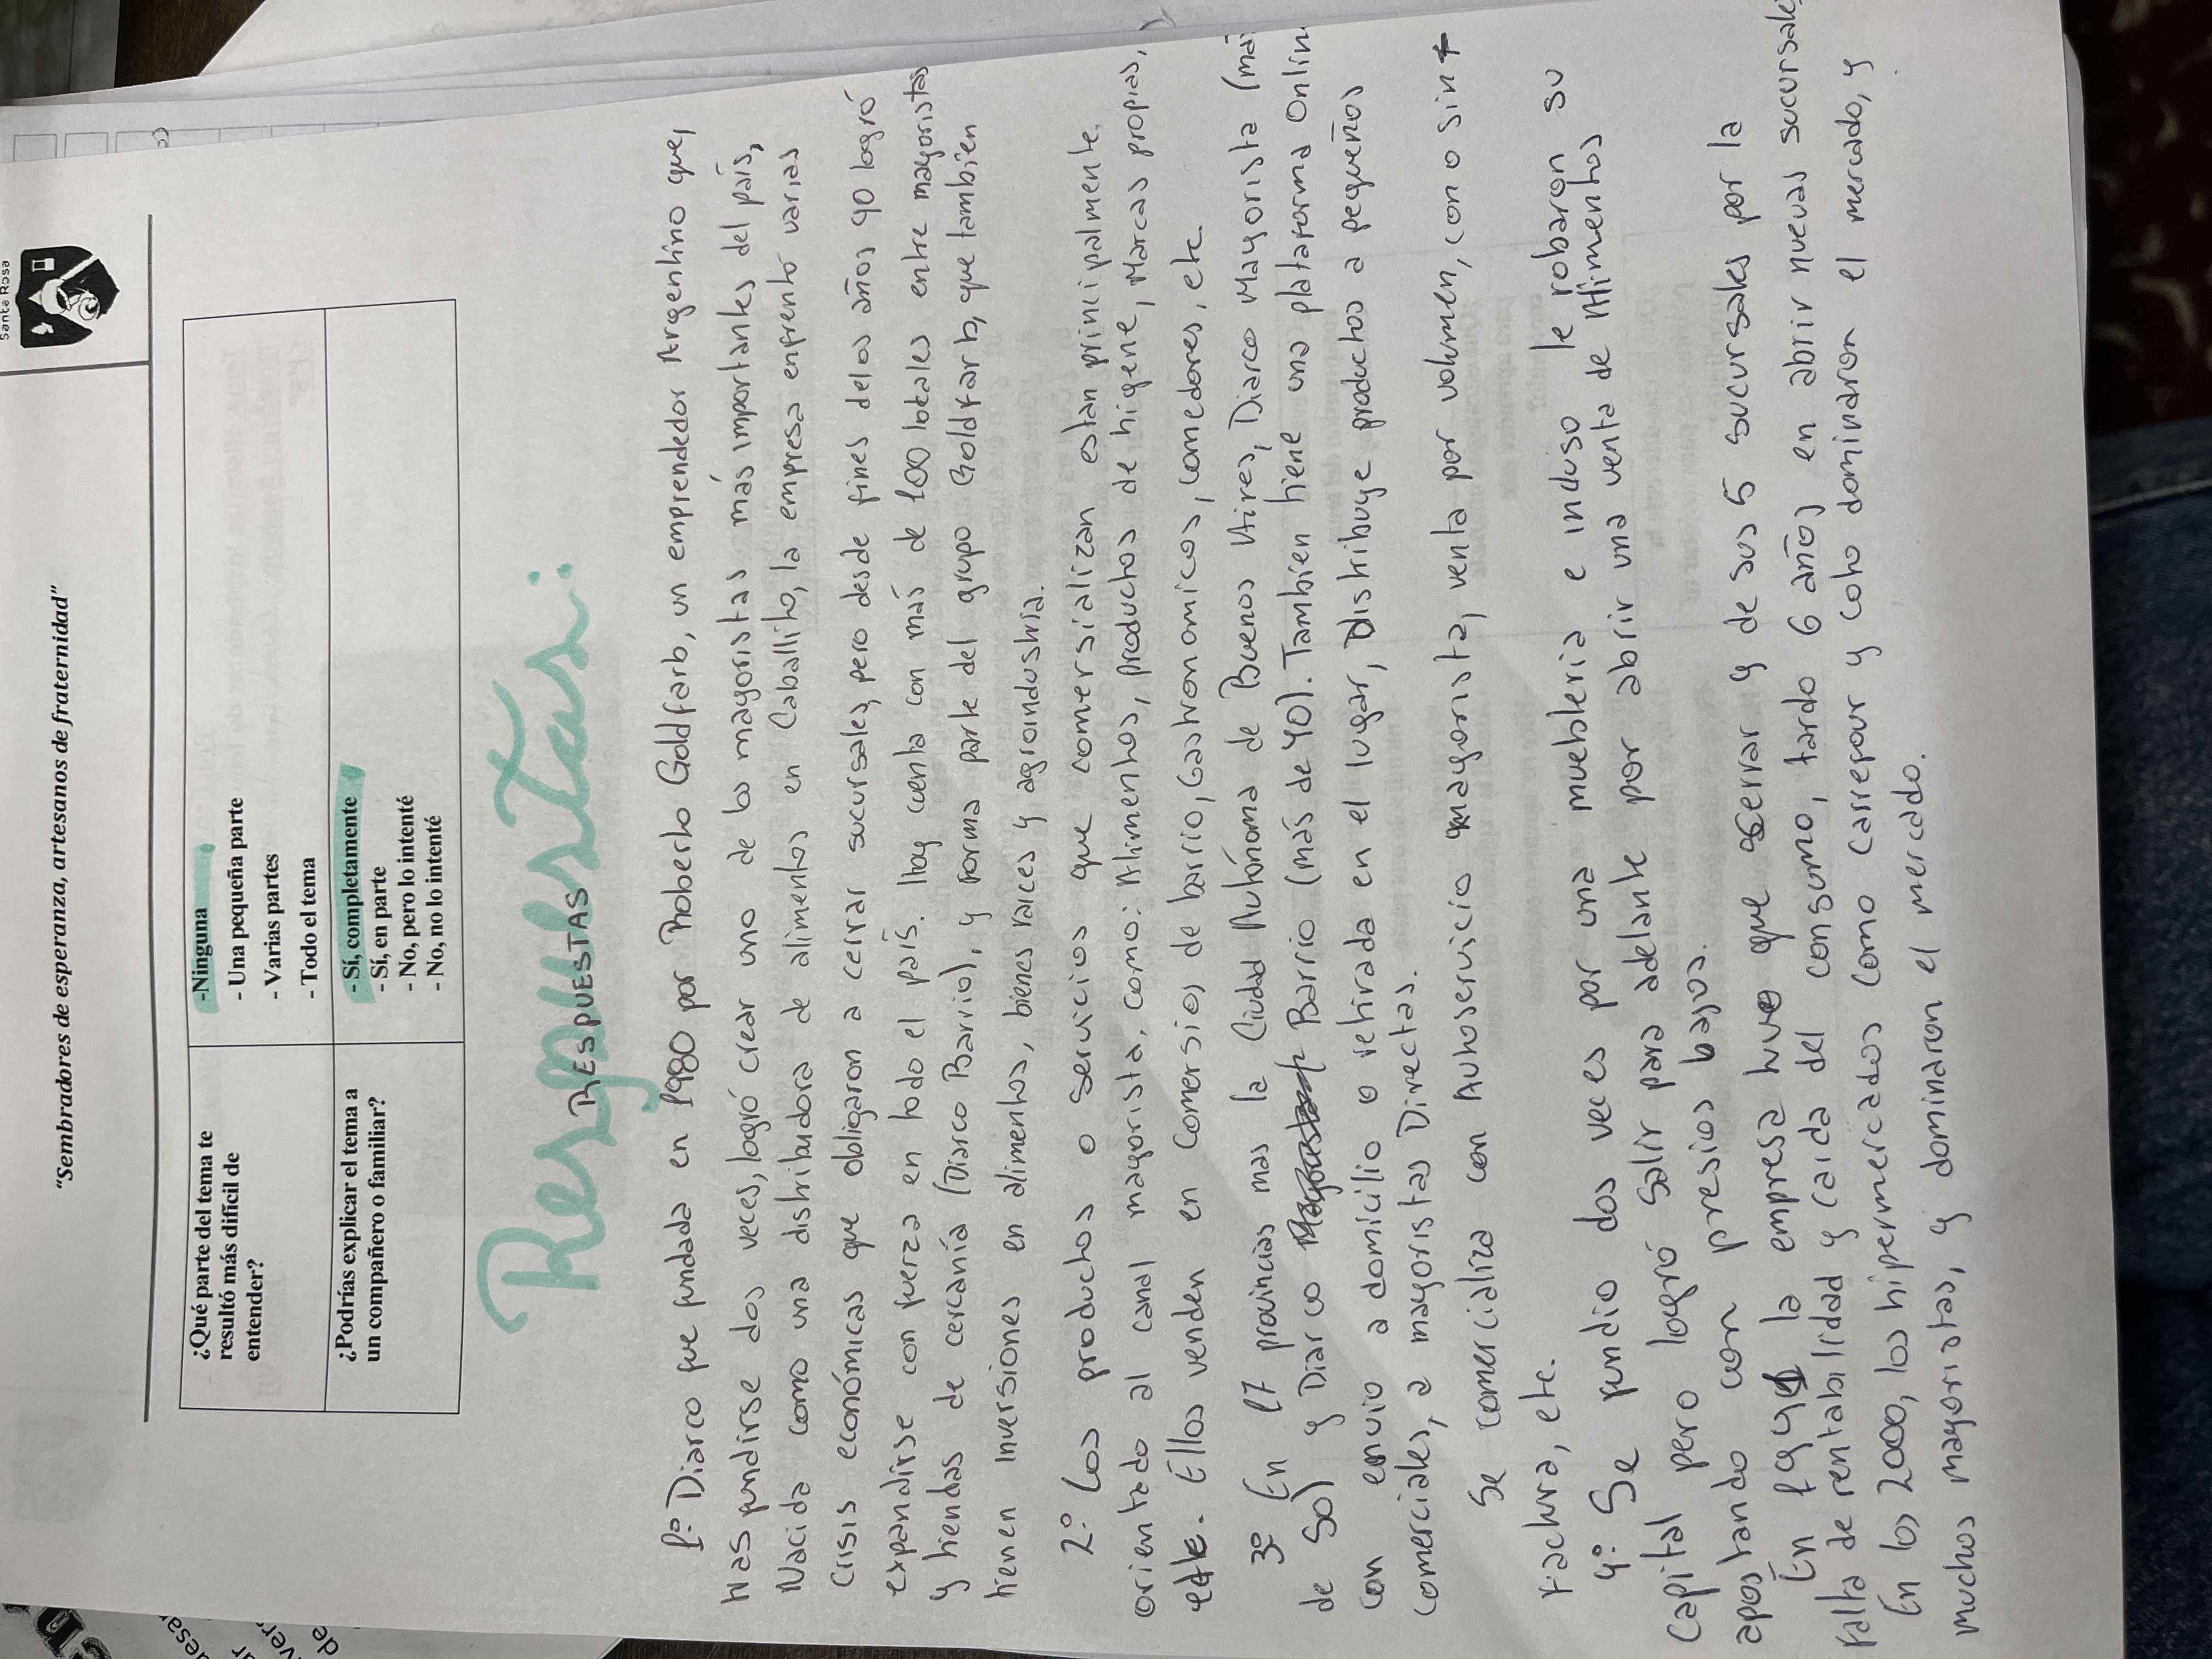 Santa Rosa
"Sembradores de esperanza, artesanos de fraternidad"
¿Qué parte del tema te
resultó más difícil de
entender?
-Ninguna
- Una pequeña parte
- Varias partes
- Todo el tema
¿Podrías explicar el tema a
un compañero o familiar?
- Sí, completamente
- Sí, en parte
- No, pero lo intenté
- No, no lo intenté
Respuestas:
RESPUESTAS
1º Diarco fue fundada en 1980 por Roberto Goldfarb, un emprendedor Argentino que,
tras fundirse dos veces, logró crear uno de los mayoristas más importantes del país,
Nacida como una distribuidora de alimentos en Caballito, la empresa enfrentó varias
Crisis económicas que obligaron a cerrar sucursales, pero desde fines de los años 90 logró
expandirse con fuerza en todo el país. Hoy cuenta con más de 100 locales entre mayoristas
y tiendas de cercanía (Diarco Barrio), y forma parte del grupo Goldfarb, que tambien
tienen inversiones en alimentos, bienes raíces y agroindustria.
2º Los productos o servicios que comersializan estan principalmente
orientado al canal mayorista, como: Alimentos, productos de higene, Marcas propias,
etc. Ellos venden en Comersios de barrio, Gastronomicos, comedores, etc.
3º En 17 provincias mas la Ciudad Autónoma de Buenos Aires, Diarco Mayorista (más
de 50) y Diarco Barrio (más de 40). Tambien tiene una plataforma Online
con envio a domicilio o retirada en el lugar, Distribuye productos a pequeños
comerciales, a mayoristas Directas.
Se comercializa con Autoservicio mayorista, venta por volumen, con o sin
factura, etc.
4º Se fundio dos veces por una muebleria e incluso le robaron su
Capital pero logró salir para adelante por abrir una venta de Alimentos
apostando con presios bajos.
En la empresa tuvo que serrar 4 de sus 5 sucursales por la
falta de rentabilidad y caida del consumo, tardo 6 años en abrir nuevas sucursales
En los 2000, los hipermercados como carrefour y coto dominaron el mercado, y
muchos mayoristas, y dominaron el mercado.